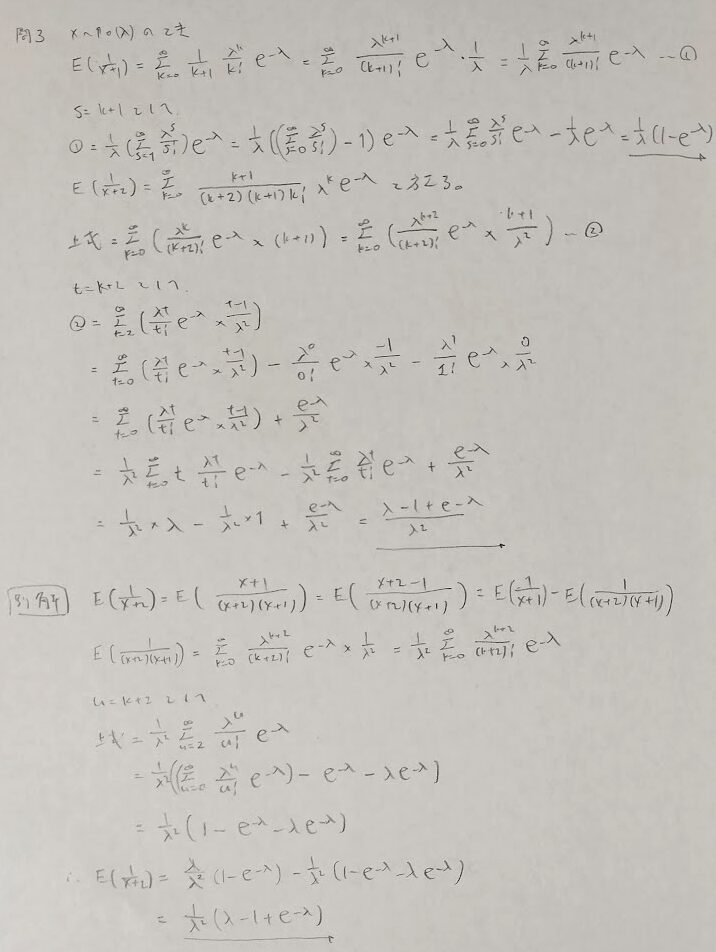 問3 X~Po(λ) のとき
E(1/(X+1)) = Σ_{k=0}^{∞} 1/(k+1) λ^k/k! e^{-λ} = Σ_{k=0}^{∞} λ^{k+1}/(k+1)! e^{-λ}・1/λ = 1/λ Σ_{k=0}^{∞} λ^{k+1}/(k+1)! e^{-λ} …①
s=k+1 として
① = 1/λ (Σ_{s=1}^{∞} λ^s/s!) e^{-λ} = 1/λ ((Σ_{s=0}^{∞} λ^s/s!) - 1) e^{-λ} = 1/λ Σ_{s=0}^{∞} λ^s/s! e^{-λ} - 1/λ e^{-λ} = 1/λ (1-e^{-λ})
E(1/(X+2)) = Σ_{k=0}^{∞} (k+1)/((k+2)(k+1)k!) λ^k e^{-λ} と考える。
上式 = Σ_{k=0}^{∞} (λ^k/(k+2)! e^{-λ} × (k+1)) = Σ_{k=0}^{∞} (λ^{k+2}/(k+2)! e^{-λ} × (k+1)/λ^2) …②
t=k+2 として
② = Σ_{t=2}^{∞} (λ^t/t! e^{-λ} × (t-1)/λ^2)
= Σ_{t=0}^{∞} (λ^t/t! e^{-λ} × (t-1)/λ^2) - λ^0/0! e^{-λ} × (-1)/λ^2 - λ^1/1! e^{-λ} × 0/λ^2
= Σ_{t=0}^{∞} (λ^t/t! e^{-λ} × (t-1)/λ^2) + e^{-λ}/λ^2
= 1/λ^2 Σ_{t=0}^{∞} t λ^t/t! e^{-λ} - 1/λ^2 Σ_{t=0}^{∞} λ^t/t! e^{-λ} + e^{-λ}/λ^2
= 1/λ^2 × λ - 1/λ^2 × 1 + e^{-λ}/λ^2 = (λ-1+e^{-λ})/λ^2
別解 E(1/(X+2)) = E((X+1)/((X+2)(X+1))) = E((X+2-1)/((X+2)(X+1))) = E(1/(X+1)) - E(1/((X+2)(X+1)))
E(1/((X+2)(X+1))) = Σ_{k=0}^{∞} λ^{k+2}/(k+2)! e^{-λ} × 1/λ^2 = 1/λ^2 Σ_{k=0}^{∞} λ^{k+2}/(k+2)! e^{-λ}
u=k+2 として
上式 = 1/λ^2 Σ_{u=2}^{∞} λ^u/u! e^{-λ}
= 1/λ^2 ((Σ_{u=0}^{∞} λ^u/u! e^{-λ}) - e^{-λ} - λe^{-λ})
= 1/λ^2 (1 - e^{-λ} - λe^{-λ})
∴ E(1/(X+2)) = λ/λ^2 (1-e^{-λ}) - 1/λ^2 (1-e^{-λ}-λe^{-λ})
= 1/λ^2 (λ-1+e^{-λ})